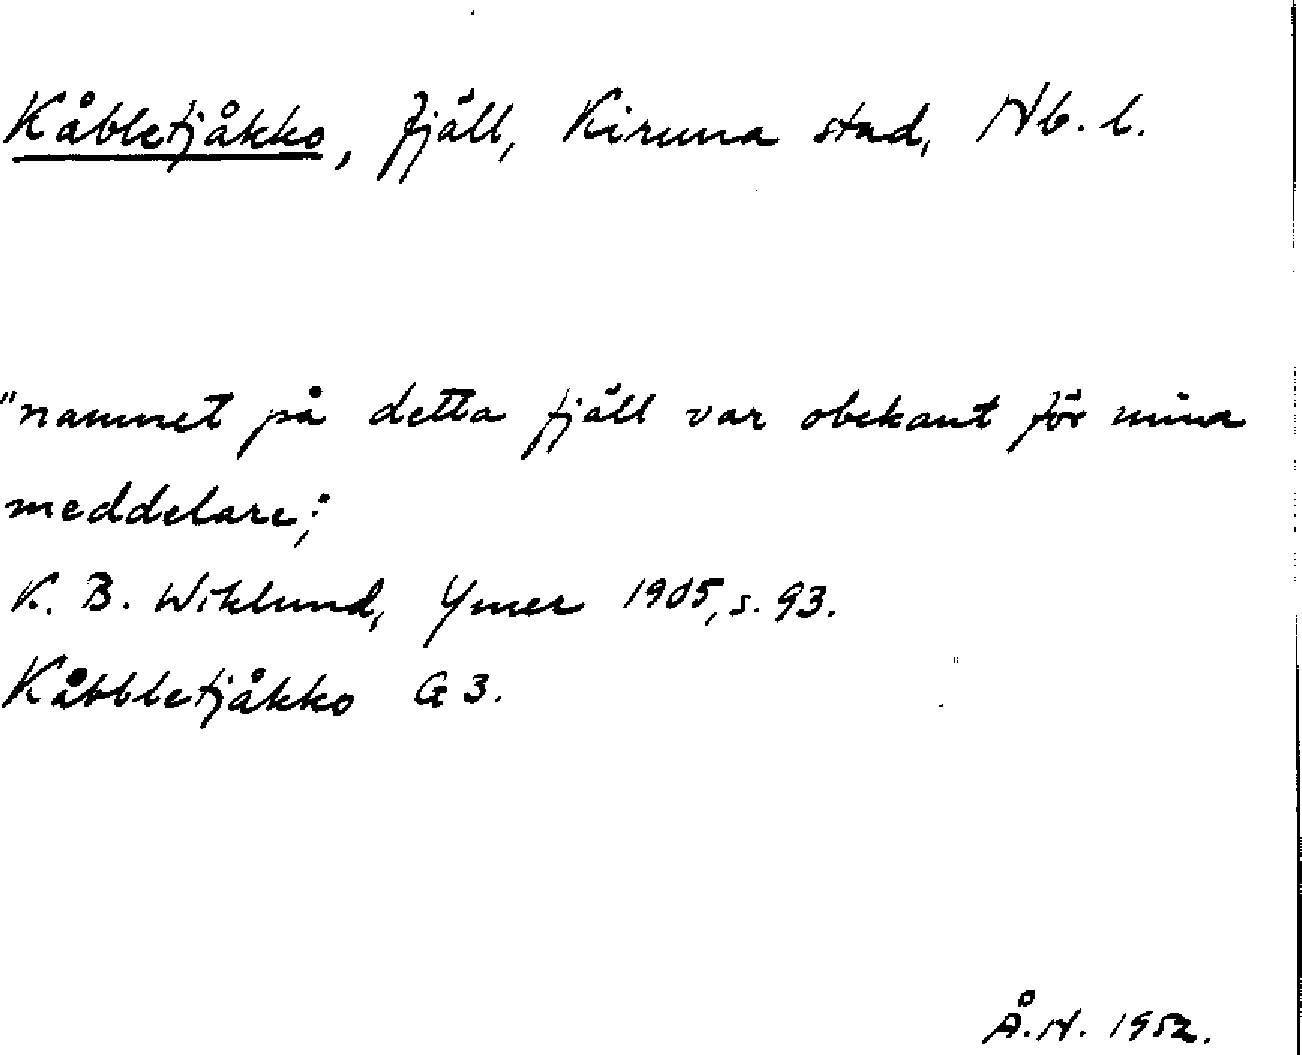 Kåbletjåkko, fjäll, Kiruna stad, Nb. l.
"namnet på detta fjäll var obekant för mina
meddelare;"
K. B. Wiklund, Ymer 1905, s. 93.
Kåbbletjåkko G3.
Å.N. 1952.